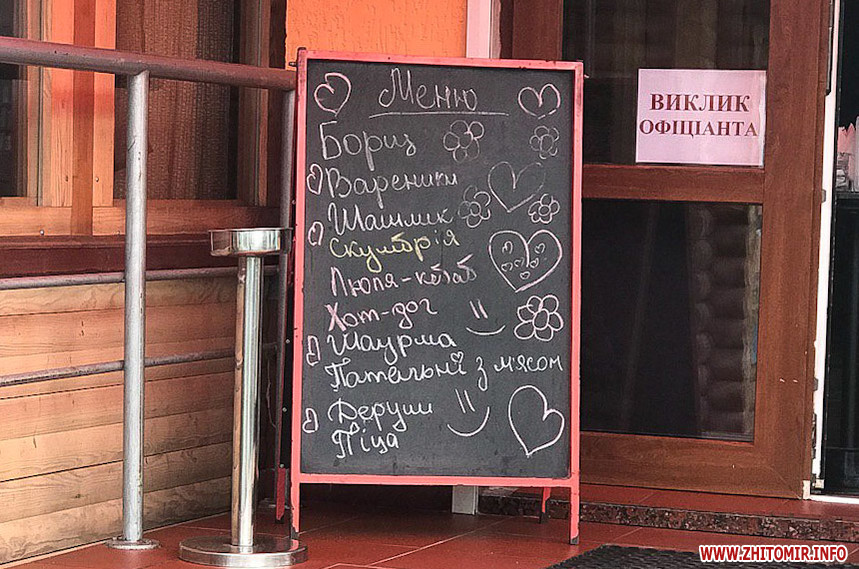 Меню
Борщ
Вареники
Шашлик
Скумбрія
Люля-кебаб
Хот-дог
Шаурма
Пательні з м'ясом
Деруни
Піца
ВИКЛИК
ОФІЦІАНТА
WWW.ZHITOMIR.INFO